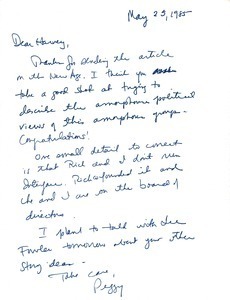 May 23, 1985
Dear Harvey,
Thanks for sending the article
on the New Age. I think you
take a good shot at trying to
describe the amorphous political
views of this amorphous group.
Congratulations!
One small detail to correct
is that Rich and I don't run
Rich founded it and
he and I are on the board of
directors.
I plan to talk with Lee
Fowler tomorrow about your other
story ideas.
Take care,
Peggy